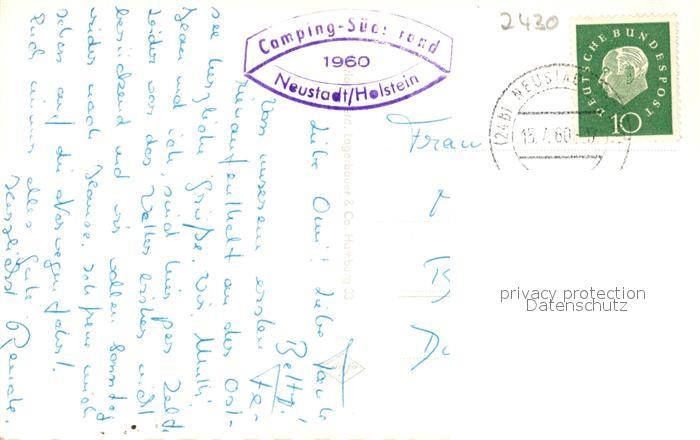 Camping-Süd: rand
1960
Neustadt/Holstein
2430
DEUTSCHE BUNDESPOST
10
(24b) NEUSTADT
15.7.60-17
Frau
privacy protection
Datenschutz
& Co. Hamburg 33
Liebe Omi! Liebe Tante
Betty!
Von unserem ersten
Ferienaufenthalt an der Ost-
see herzliche Grüße. Wir, Mutti,
und ich, sind hier per Zelt.
Leider war das Wetter bisher nicht
berückend und wir wollen Sonntag
wieder nach Hause. Ich freue mich
schon auf die Norwegenfahrt.
Euch immer alles Gute
Herzlichst Renate.